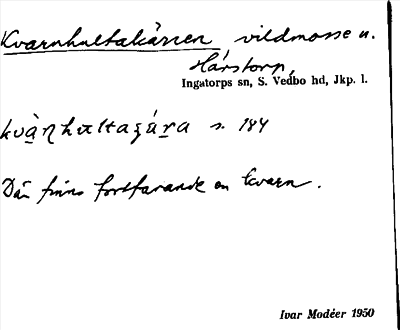 Kvarnhultakärren vildmosse u.
Hårstorp,
Ingatorps sn, S. Vedbo hd, Jkp. l.
kvàṇhultaʒára s. 184
Där finns fortfarande en kvarn.
Ivar Modéer 1950